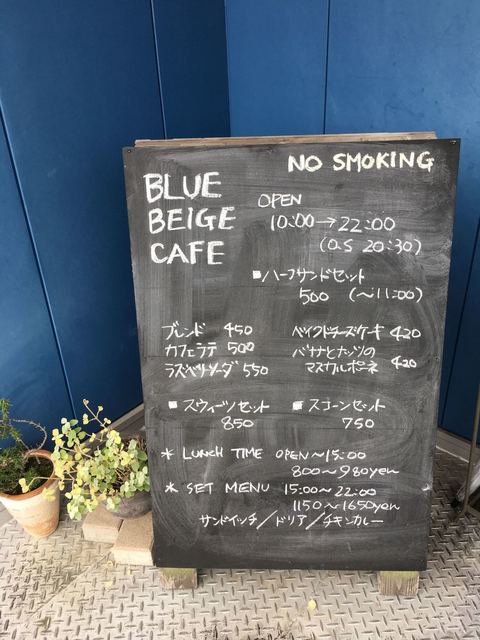 NO SMOKING
BLUE
BEIGE
CAFE
OPEN
10:00→22:00
(O.S 20:30)
■ハーフサンドセット
500 (〜11:00)
ブレンド 450
カフェラテ 500
ラズベリソーダ 550
ベイクドチーズケーキ 420
バナナとナッツの
マスカルポーネ 420
■スウィーツセット
850
■スコーンセット
750
* LUNCH TIME OPEN〜15:00
800〜980yen
* SET MENU 15:00〜22:00
1150〜1650yen
サンドイッチ/ドリア/チキンカレー